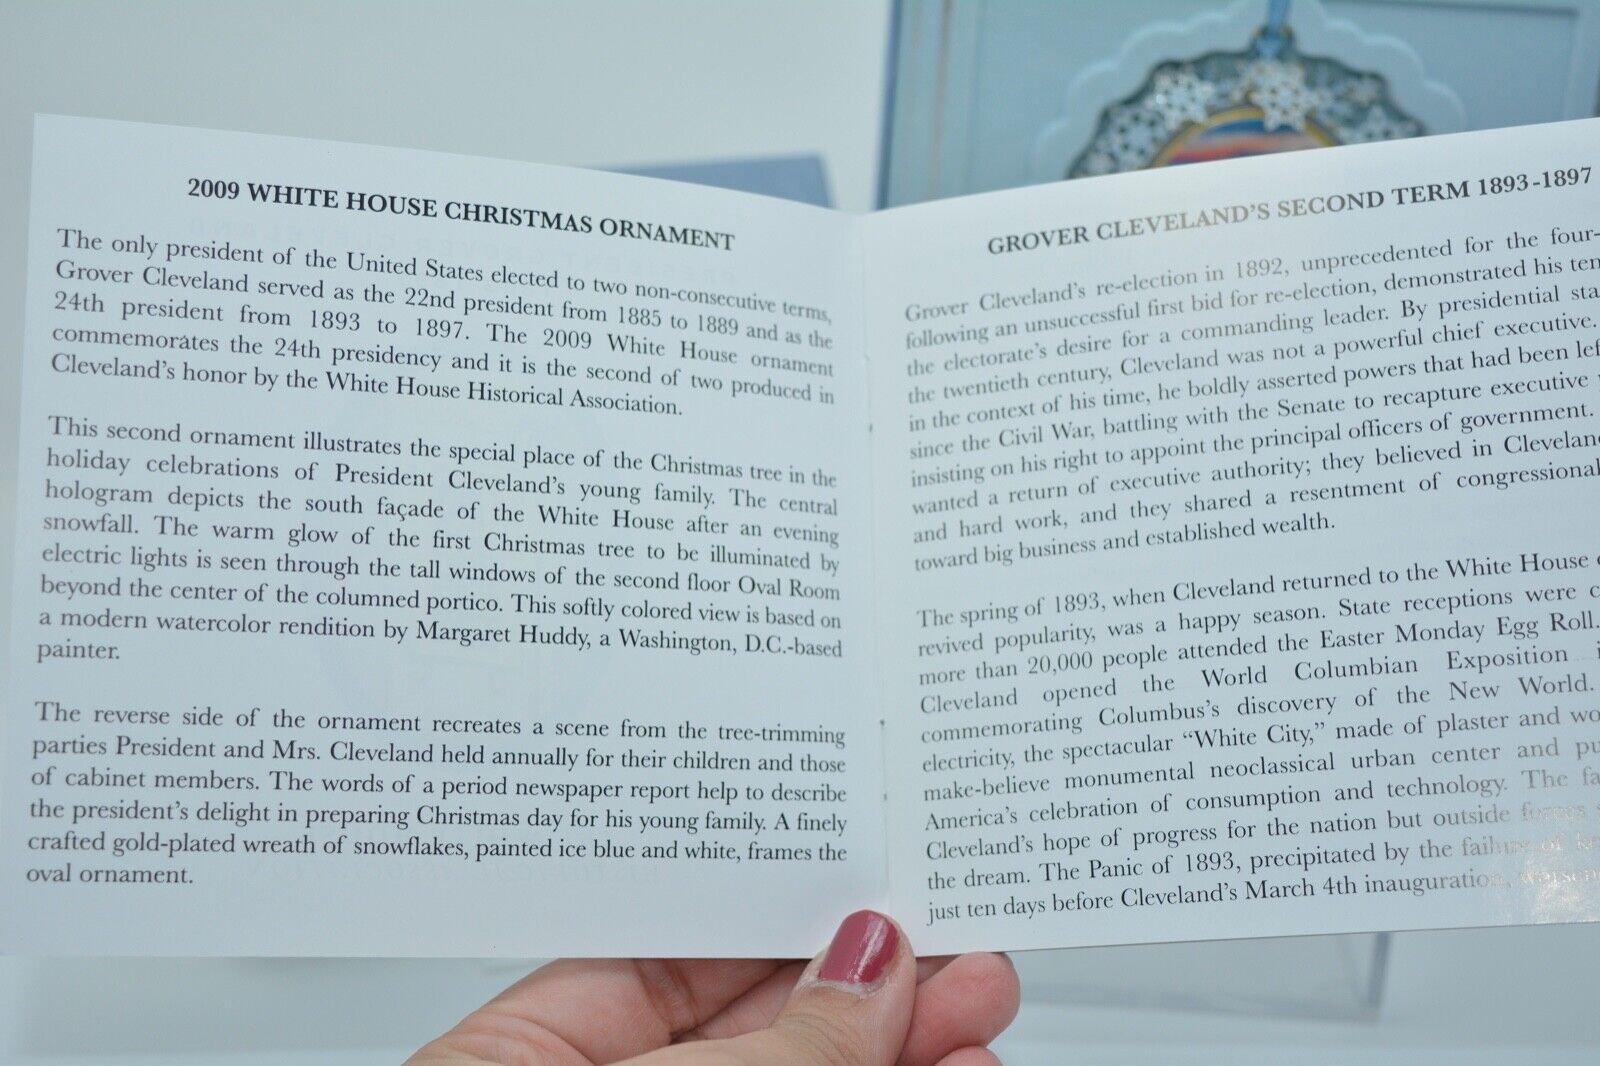 2009 WHITE HOUSE CHRISTMAS ORNAMENT
The only president of the United States elected to two non-consecutive terms,
Grover Cleveland served as the 22nd president from 1885 to 1889 and as the
24th president from 1893 to 1897. The 2009 White House ornament
commemorates the 24th presidency and it is the second of two produced in
Cleveland's honor by the White House Historical Association.
This second ornament illustrates the special place of the Christmas tree in the
holiday celebrations of President Cleveland's young family. The central
hologram depicts the south façade of the White House after an evening
snowfall. The warm glow of the first Christmas tree to be illuminated by
electric lights is seen through the tall windows of the second floor Oval Room
beyond the center of the columned portico. This softly colored view is based on
a modern watercolor rendition by Margaret Huddy, a Washington, D.C.-based
painter.
The reverse side of the ornament recreates a scene from the tree-trimming
parties President and Mrs. Cleveland held annually for their children and those
of cabinet members. The words of a period newspaper report help to describe
the president's delight in preparing Christmas day for his young family. A finely
crafted gold-plated wreath of snowflakes, painted ice blue and white, frames the
oval ornament.
GROVER CLEVELAND'S SECOND TERM 1893-1897
Grover Cleveland's re-election in 1892, unprecedented for the four-
following an unsuccessful first bid for re-election, demonstrated his ten
the electorate's desire for a commanding leader. By presidential sta
the twentieth century, Cleveland was not a powerful chief executive.
in the context of his time, he boldly asserted powers that had been lef
since the Civil War, battling with the Senate to recapture executive
insisting on his right to appoint the principal officers of government.
wanted a return of executive authority; they believed in Clevelan
and hard work, and they shared a resentment of congressional
toward big business and established wealth.
The spring of 1893, when Cleveland returned to the White House
revived popularity, was a happy season. State receptions were c
more than 20,000 people attended the Easter Monday Egg Roll.
Cleveland opened the World Columbian Exposition i
commemorating Columbus's discovery of the New World.
electricity, the spectacular “White City,” made of plaster and wo
make-believe monumental neoclassical urban center and pu
America's celebration of consumption and technology. The fa
Cleveland's hope of progress for the nation but outside forces
the dream. The Panic of 1893, precipitated by the failure of
just ten days before Cleveland's March 4th inauguration,